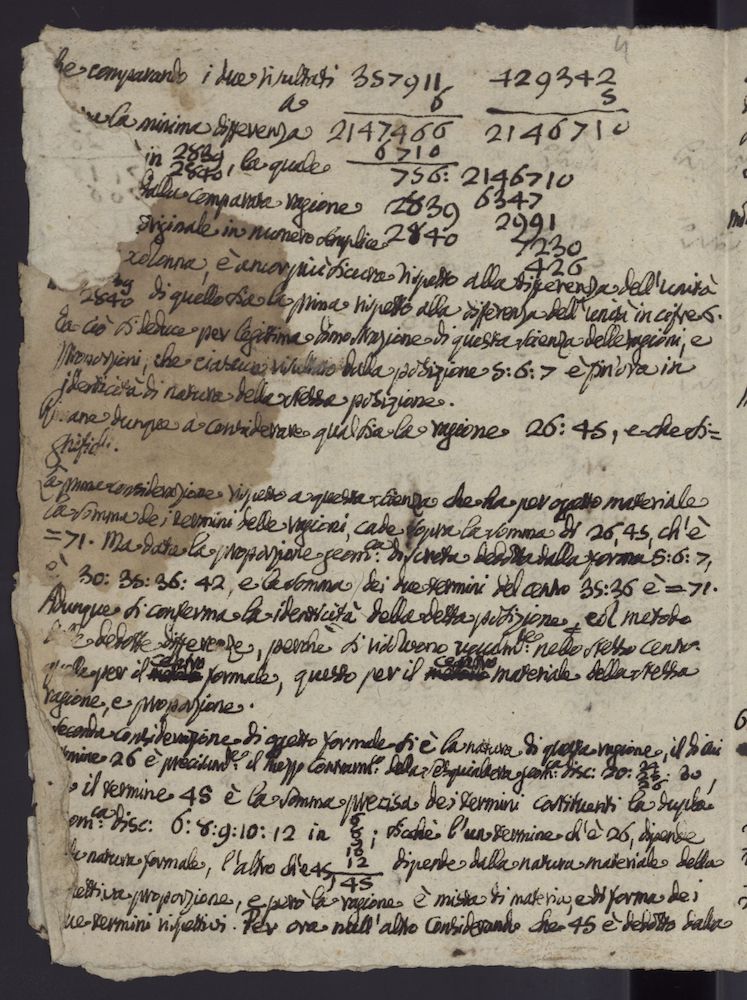 4
he comparando i due risultati 357911 429342
a 6 5
la minima differenza 2147466 2146710
in 2839 6710
2840, la quale 756: 2146710
dalla comparata ragione 2839 6347
originale in numero semplice 2840 2991
7230
colonna, è ancor più sicura rispetto alla differenza dell'unità 426
2839
2840 di quello sia la prima rispetto alla differenza dell'unità in cifre 6.
Da ciò si deduce per legitima dimostrazione di questa scienza delle ragioni, e
proporzioni, che ciascun risultato dalla posizione 5:6:7 è fin'ora in
identicità di natura della stessa posizione.
Rimane dunque a considerare qual sia la ragione 26:45, e che si=
gnifichi.
La prima considerazione rispetto a questa scienza che ha per ogetto materiale
la somma dei termini delle ragioni, cade sopra la somma di 26, 45, ch'è
=71. Ma data la proporzione geom.ca discreta dedotta dalla forma 5:6:7,
è 30:35:36:42, e la somma dei due termini del centro 35:36 è =71.
Adunque si conferma la identicità della detta posizione, col metodo
dedotte differenze, perchè si risolvono nello stesso centro
quelle per il centro formale, questo per il centro materiale della stessa
ragione, e proporzione.
Seconda considerazione di ogetto formale si è la natura di questa ragione, il di cui
termine 26 è il mezzo della sesquialtera geom.ca disc: 20: 24
25
26 : 30,
il termine 45 è la somma precisa dei termini costituenti la dupla
geom.ca disc: 6:8:9:10:12 in 6
8
9
10
12
45; sicchè l'un termine ch'è 26, dipende
da natura formale, l'altro ch'è 45, dipende dalla natura materiale della
rispettiva proporzione, e però la ragione è mista di materia, e di forma dei
due termini rispettivi. Per ora null'altro considerando che 45 è dedotto dalla